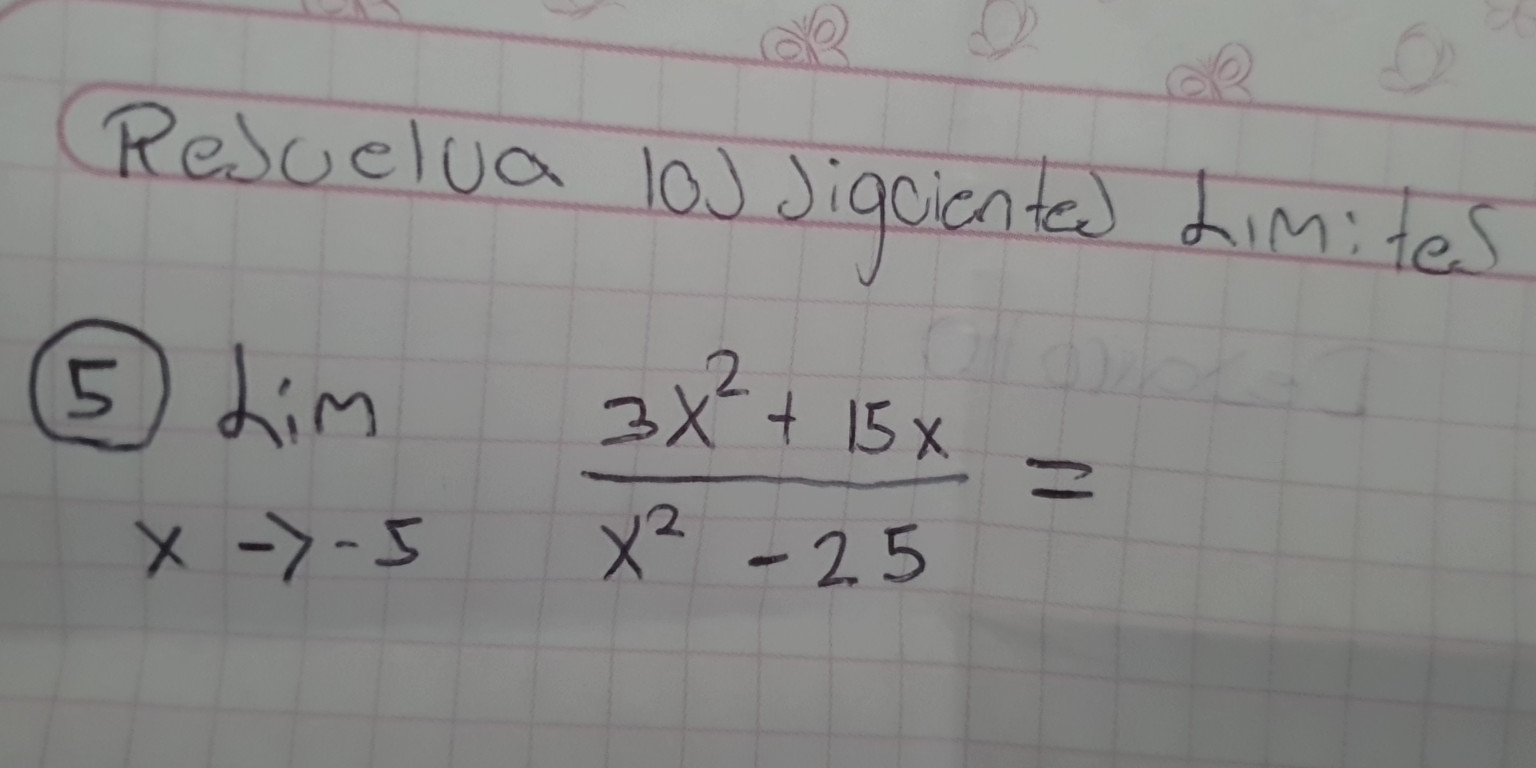 Resuelva los sigcientes Limites
5 Lim 3x² + 15x =
x -> -5 x² - 25